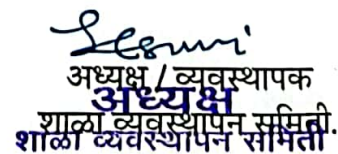 अध्यक्ष / व्यवस्थापक
अध्यक्ष
शाळा व्यवस्थापन समिती.
शाळा व्यवस्थापन समिती